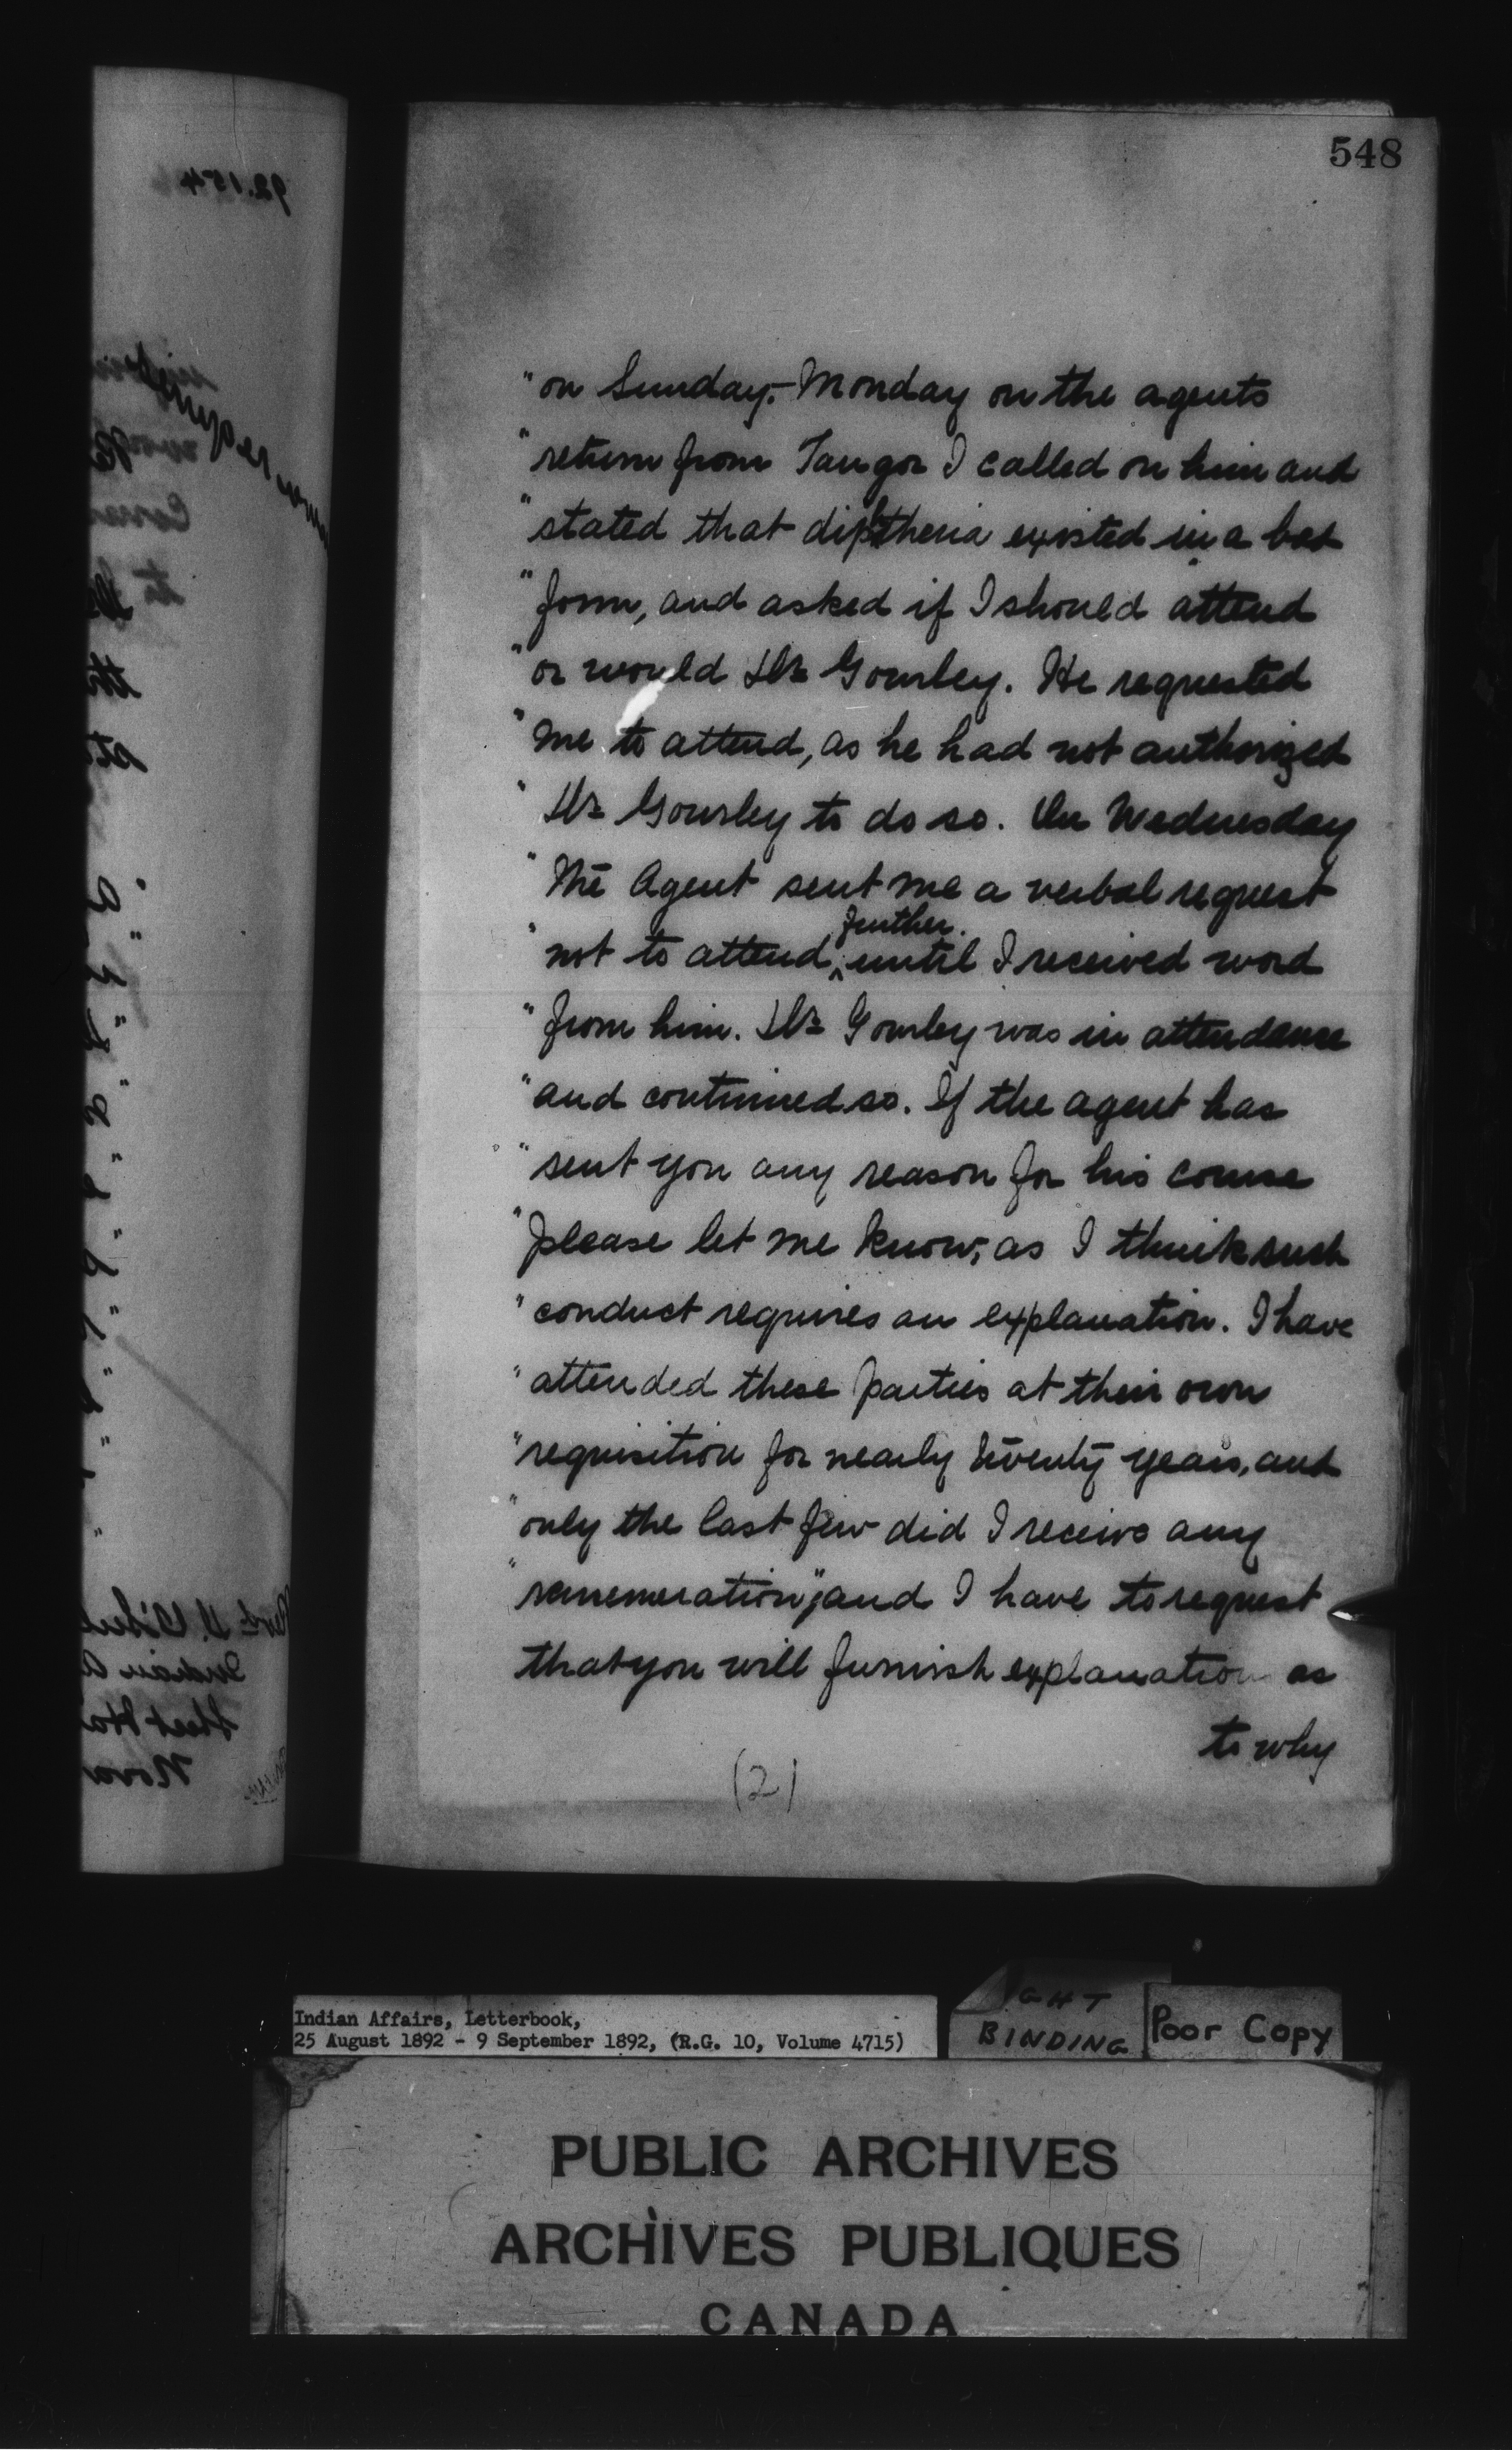 548
"on Sunday.- Monday on the agents
"return from Tangor I called on him and
"stated that diptheria existed in a bad
"form, and asked if I should attend
"or would Dr. Gourley. He requested
"me to attend, as he had not authorized
"Dr. Gourley to do so. On Wednesday
"The Agent sent me a verbal request
further.
"not to attend, ^ until I received word
"from him. Dr. Gourley was in attendance
"and continued so. If the agent has
"sent you any reason for his course
"please let me know, as I think such
"conduct requires an explanation. I have
"attended these parties at their own
"requisition for nearly twenty years, and
"only the last few did I receive any
"remuneration", and I have to request
that you will furnish explanation as
to why
(2)
Indian Affairs, Letterbook,
25 August 1892 - 9 September 1892, (R.G. 10, Volume 4715)
GHT
BINDING
Poor Copy
PUBLIC ARCHIVES
ARCHIVES PUBLIQUES
CANADA